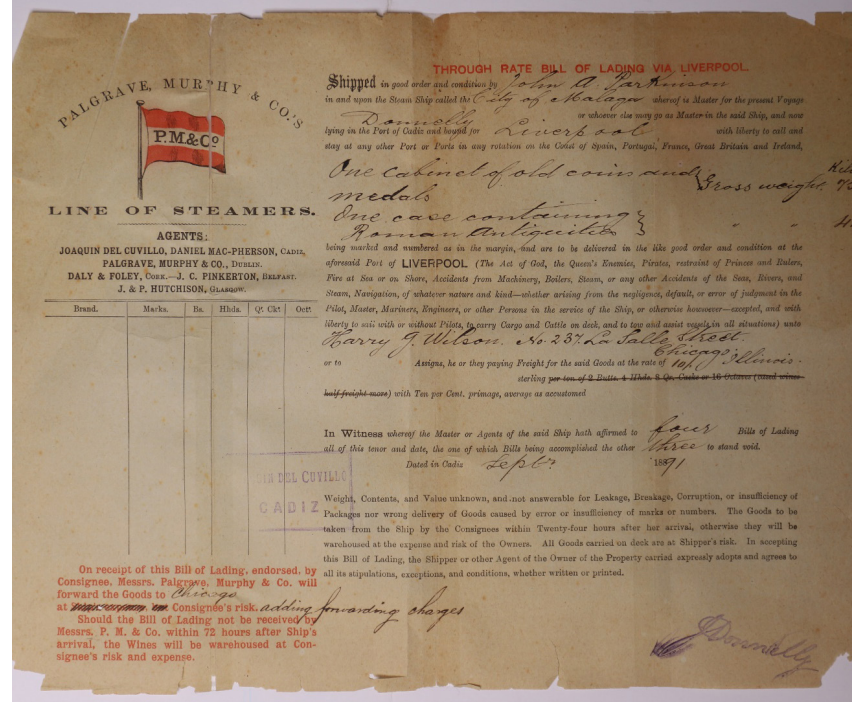 PALGRAVE, MURPHY & CO.'S
P.M.&Cº
LINE OF STEAMERS.
AGENTS:
JOAQUIN DEL CUVILLO, DANIEL MAC-PHERSON, CADIZ,
PALGRAVE, MURPHY & CO., DUBLIN.
DALY & FOLEY, CORK.—J. C. PINKERTON, BELFAST.
J. & P. HUTCHISON, GLASGOW.
Brand. Marks. Bs. Hhds. Qr. Cks Oct.
DEL CUVILLO
CADIZ
On receipt of this Bill of Lading, endorsed, by
Consignee, Messrs. Palgrave, Murphy & Co. will
forward the Goods to Chicago
at Consignee's risk. adding forwarding charges
Should the Bill of Lading not be received by
Messrs. P. M. & Co. within 72 hours after Ship's
arrival, the Wines will be warehoused at Con-
signee's risk and expense.
THROUGH RATE BILL OF LADING VIA LIVERPOOL.
Shipped in good order and condition by John A. Parkinson
in and upon the Steam Ship called the City of Malaga whereof is Master for the present Voyage
Donnelly or whoever else may go as Master in the said Ship, and now
lying in the Port of Cadiz and bound for Liverpool with liberty to call and
stay at any other Port or Ports in any rotation on the Coast of Spain, Portugal, France, Great Britain and Ireland,
One cabinet of old coins and
medals } Gross weight.
One case containing
Roman Antiquities } " "
being marked and numbered as in the margin, and are to be delivered in the like good order and condition at the
aforesaid Port of LIVERPOOL (The Act of God, the Queen's Enemies, Pirates, restraint of Princes and Rulers,
Fire at Sea or on Shore, Accidents from Machinery, Boilers, Steam, or any other Accidents of the Seas, Rivers, and
Steam, Navigation, of whatever nature and kind—whether arising from the negligence, default, or error of judgment in the
Pilot, Master, Mariners, Engineers, or other Persons in the service of the Ship, or otherwise howsoever—excepted, and with
liberty to sail with or without Pilots, to carry Cargo and Cattle on deck, and to tow and assist vessels in all situations) unto
Harry G. Wilson. No. 237 La Salle Street.
Chicago Illinois.
or to Assigns, he or they paying Freight for the said Goods at the rate of 10/.
sterling per ton of 2 Butts. 4 Hhds. 8 Qr. Casks or 16 Octaves (cased wines
half freight more) with Ten per Cent. primage, average as accustomed
In Witness whereof the Master or Agents of the said Ship hath affirmed to four Bills of Lading
all of this tenor and date, the one of which Bills being accomplished the other three to stand void.
Dated in Cadiz Septr 1891
Weight, Contents, and Value unknown, and not answerable for Leakage, Breakage, Corruption, or insufficiency of
Packages nor wrong delivery of Goods caused by error or insufficiency of marks or numbers. The Goods to be
taken from the Ship by the Consignees within Twenty-four hours after her arrival, otherwise they will be
warehoused at the expense and risk of the Owners. All Goods carried on deck are at Shipper's risk. In accepting
this Bill of Lading, the Shipper or other Agent of the Owner of the Property carried expressly adopts and agrees to
all its stipulations, exceptions, and conditions, whether written or printed.
J Donnelly